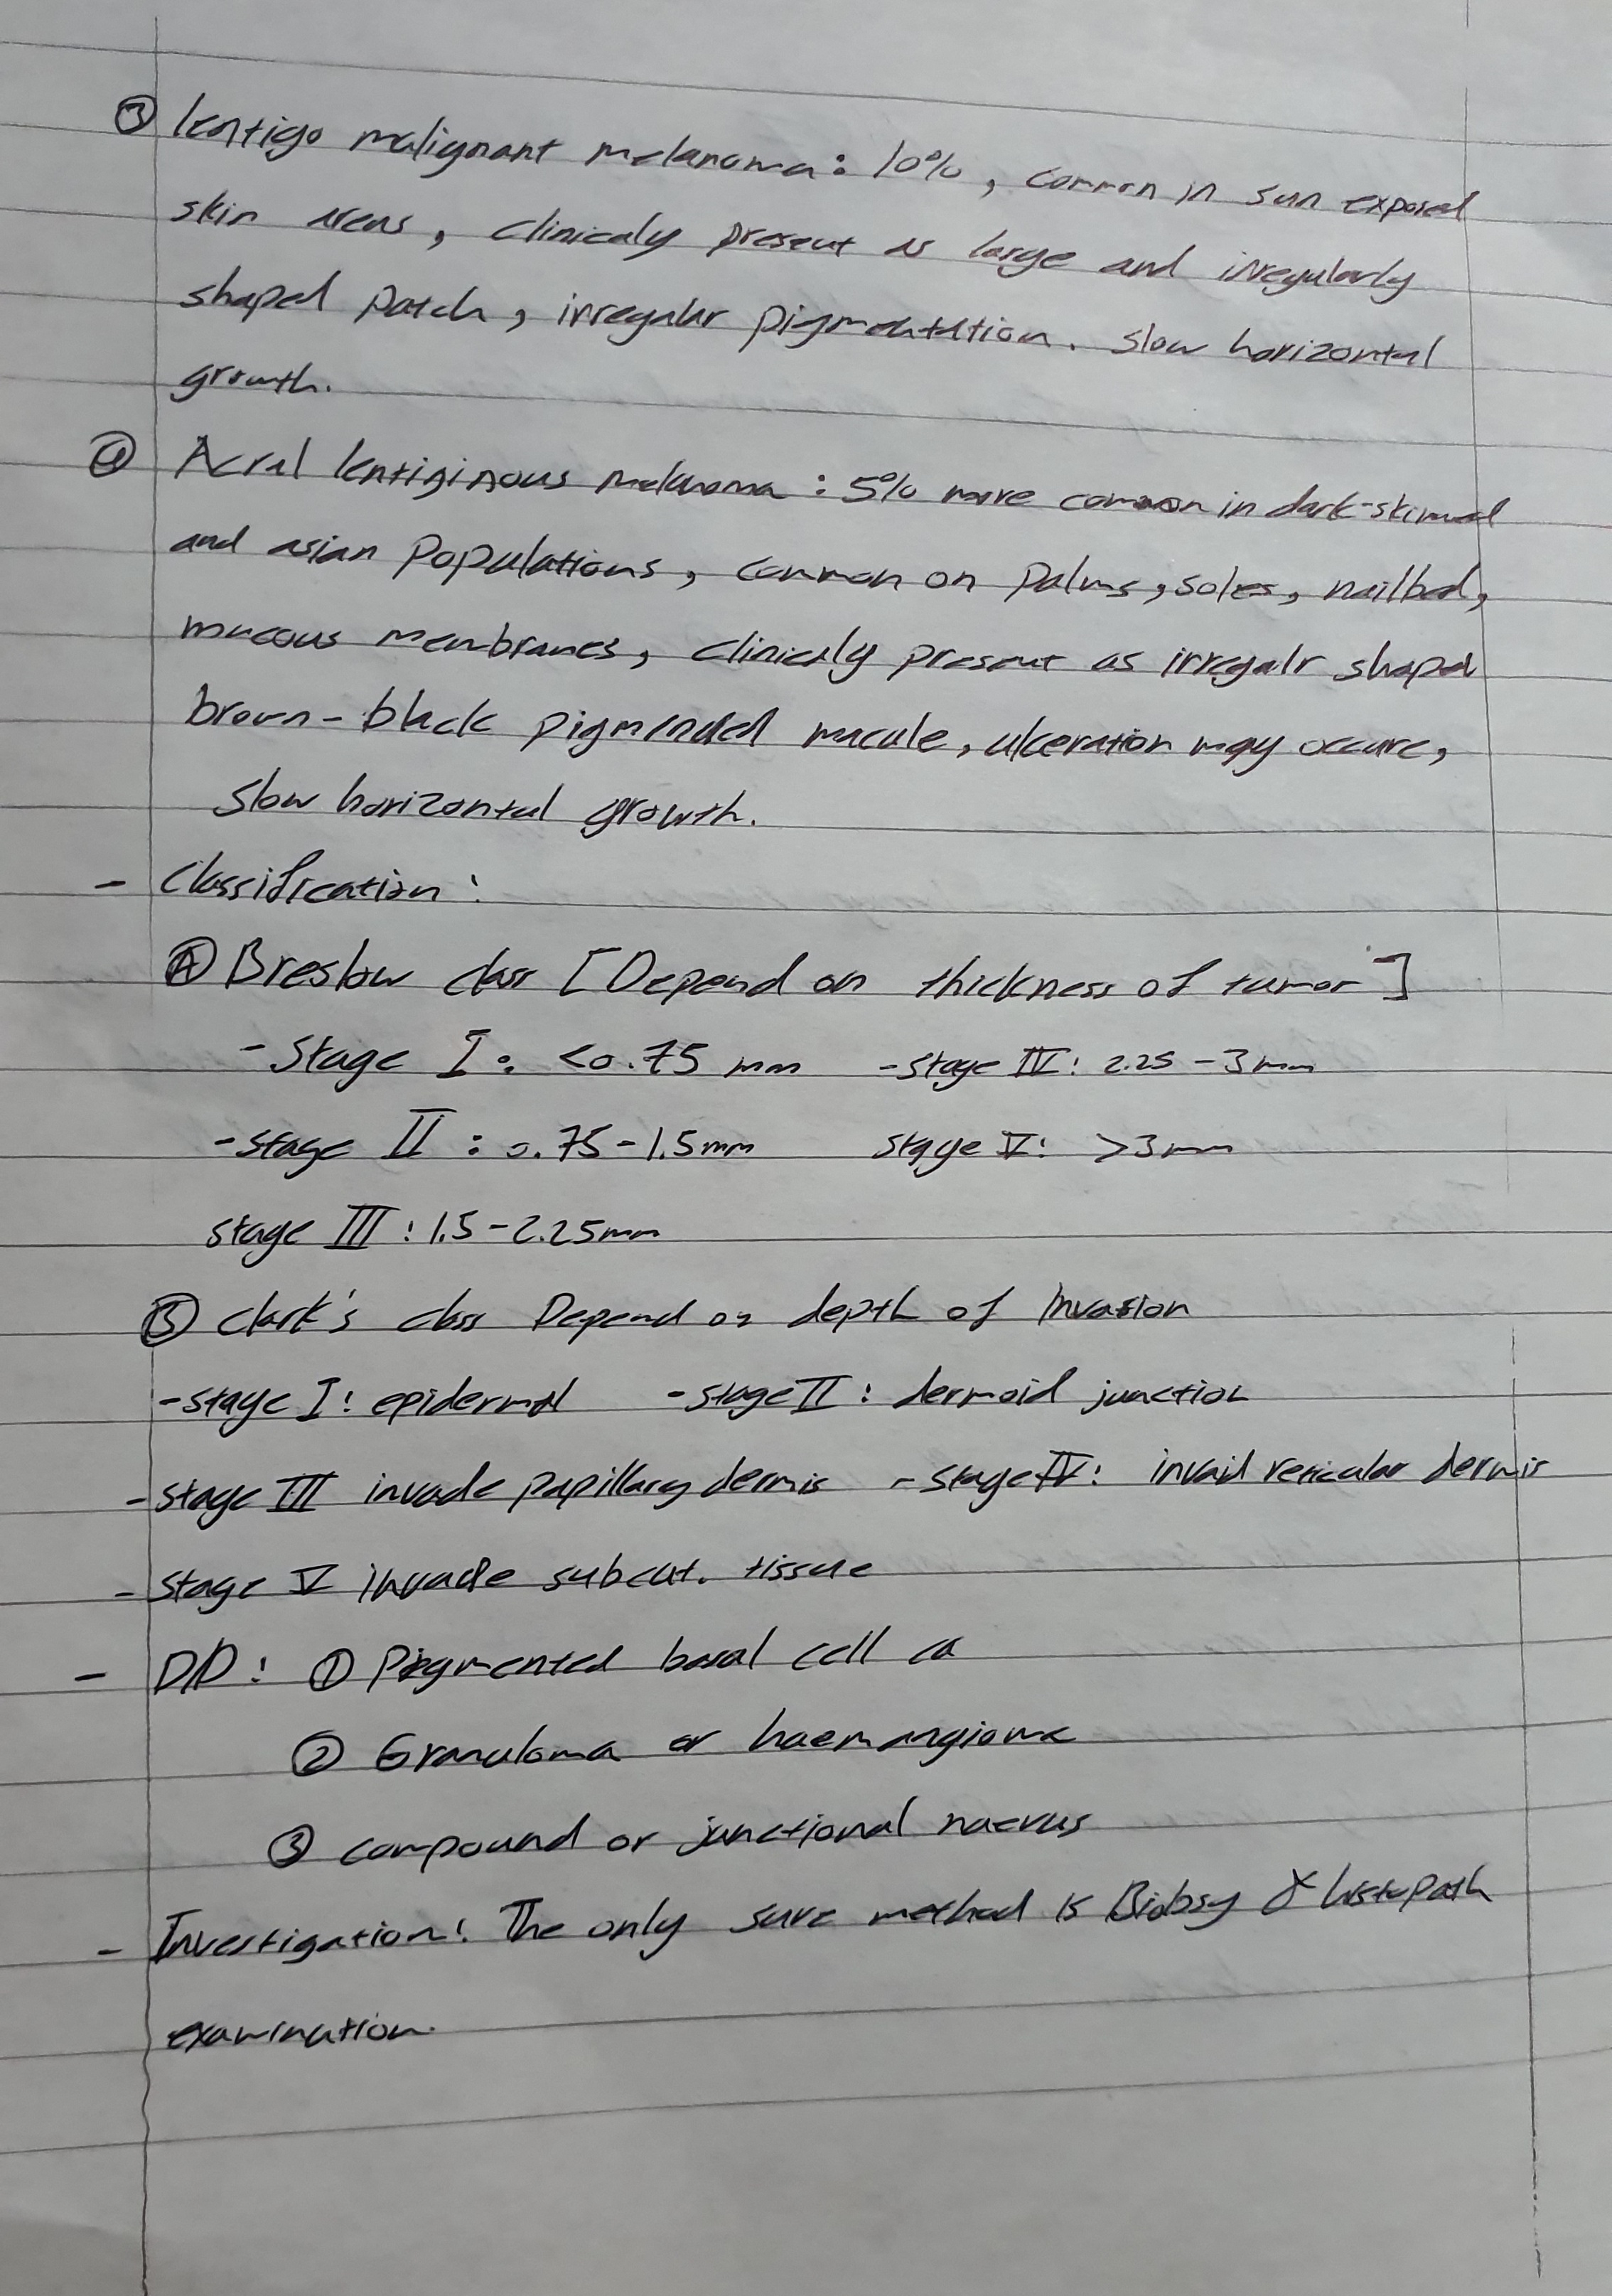 ③ lentigo malignant melanoma: 10%, common in sun exposed
skin areas, clinicaly present as large and irregularly
shaped patch, irregular pigmentation. slow horizontal
growth.
④ Acral lentiginous melanoma: 5% more common in dark-skinned
and asian populations, common on palms, soles, nailbed,
mucous membranes, clinicaly present as irregalr shaped
brown-black pigmented macule, ulceration may occure,
slow horizontal growth.
- Classification:
Ⓐ Breslow class [Depend on thickness of tumor]
- Stage I: <0.75 mm - stage IV: 2.25 - 3mm
- stage II: 0.75 - 1.5mm stage V: >3mm
stage III: 1.5 - 2.25mm
Ⓑ Clark's class Depend on depth of Invasion
- stage I: epidermal - stage II: dermoid junction
- stage III invade papillary dermis - stage IV: invaid reticular dermis
- stage V invade subcut. tissue
- D/D: ① Pigmented basal cell ca
② Granuloma or haemangioma
③ compound or junctional naevus
- Investigation: The only sure method is Biobsy & histopath
examination.